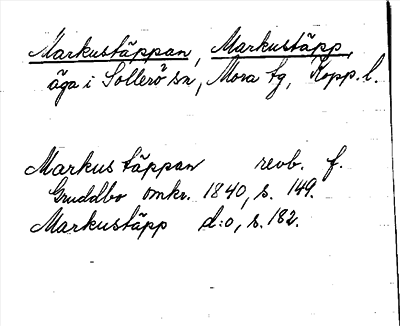 Markustäppan, Markustäpp,
äga i Sollerö sn, Mora tg, Kopp. l.
Markustäppan revb. f.
Gruddbo omkr. 1840, s. 149.
Markustäpp d:o, s. 182.